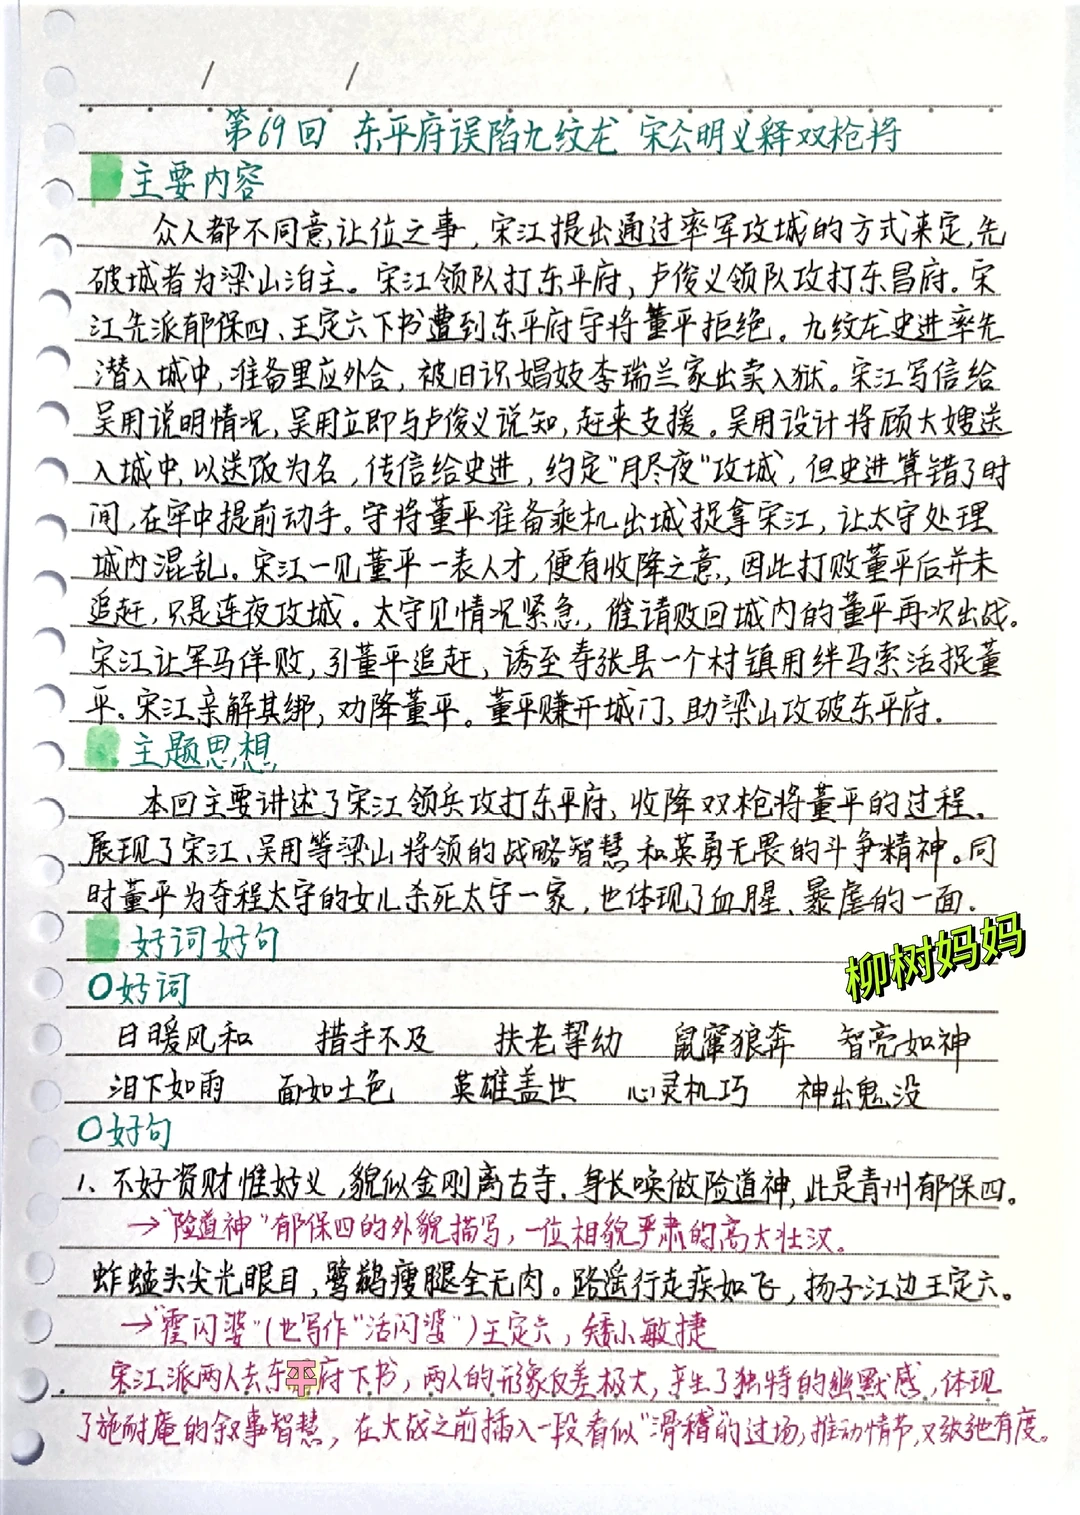 第69回 东平府误陷九纹龙 宋公明义释双枪将
主要内容
众人都不同意让位之事,宋江提出通过率军攻城的方式来定,先
破城者为梁山泊主。宋江领队打东平府,卢俊义领队攻打东昌府。宋
江先派郁保四、王定六下书遭到东平府守将董平拒绝。九纹龙史进率先
潜入城中,准备里应外合,被旧识娼妓李瑞兰家出卖入狱。宋江写信给
吴用说明情况,吴用立即与卢俊义说知,赶来支援。吴用设计将顾大嫂送
入城中,以送饭为名,传信给史进,约定"月尽夜"攻城,但史进算错了时
间,在牢中提前动手。守将董平准备乘机出城捉拿宋江,让太守处理
城内混乱。宋江一见董平一表人才,便有收降之意,因此打败董平后并未
追赶,只是连夜攻城。太守见情况紧急,催请败回城内的董平再次出战。
宋江让军马佯败,引董平追赶,诱至寿张县一个村镇用绊马索活捉董
平。宋江亲解其绑,劝降董平。董平赚开城门,助梁山攻破东平府.
主题思想
本回主要讲述了宋江领兵攻打东平府、收降双枪将董平的过程.
展现了宋江、吴用等梁山将领的战略智慧和英勇无畏的斗争精神。同
时董平为夺程太守的女儿杀死太守一家,也体现了血腥、暴虐的一面.
好词好句
柳树妈妈
○好词
日暖风和 措手不及 扶老挈幼 鼠窜狼奔 智亮如神
泪下如雨 面如土色 英雄盖世 心灵机巧 神出鬼没
○好句
1、不好资财惟好义,貌似金刚离古寺.身长唤做险道神,此是青州郁保四。
→"险道神"郁保四的外貌描写,一位相貌严肃的高大壮汉。
蚱蜢头尖光眼目,鹭鹚瘦腿全无肉。路遥行走疾如飞,扬子江边王定六。
→"霍闪婆"(也写作"活闪婆")王定六,矮小敏捷
宋江派两人去东平府下书,两人的形象反差极大,产生了独特的幽默感,体现
了施耐庵的叙事智慧,在大战之前插入一段看似"滑稽"的过场,推动情节,又张弛有度。